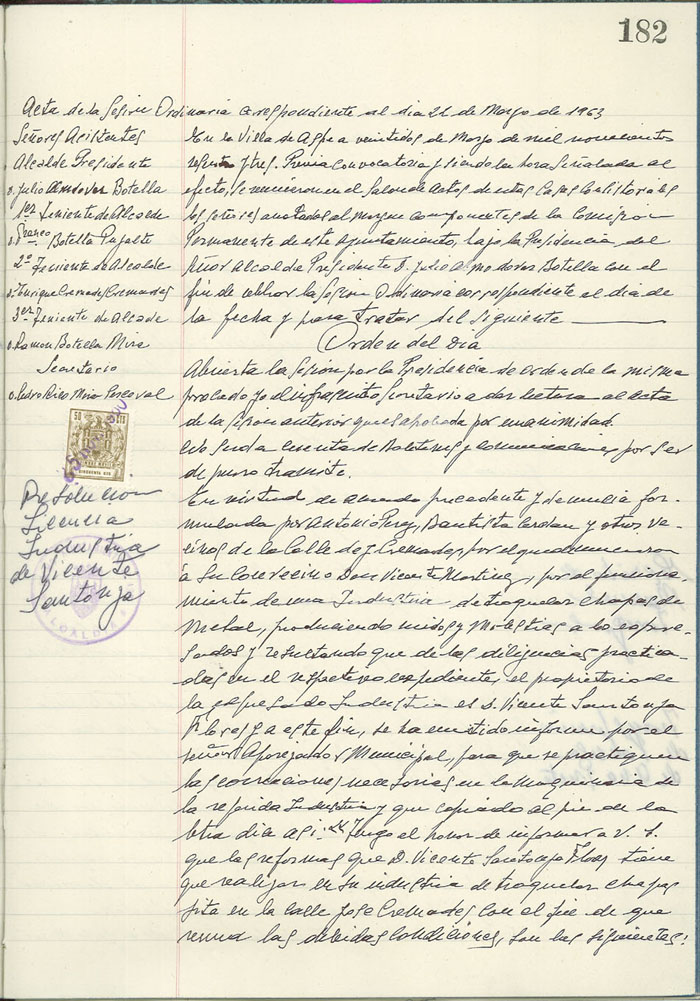 182
Acta de la Sesion Ordinaria correspondiente al dia 22 de Marzo de 1963
Señores Asistentes
Alcalde Presidente
D. Julio Almodovar Botella
1er Teniente de Alcalde
Botella
2º Teniente de Alcalde
D. Enrique Cremades Cremades
3er Teniente de Alcalde
D. Ramon Botella Mira
Secretario
D. Pedro Mira
50 CTS
Resolucion
Licencia
Industria
de Vicente
Santonja
ALCALDIA
En la Villa de Aspe a veintidos de Marzo de mil novecientos
sesenta y tres. Previa convocatoria y siendo la hora Señalada al
efecto, se reunieron en el Salon de Actos de estas Casas Consistoriales
los señores anotados al margen componentes de la Comision
Permanente de este Ayuntamiento, bajo la Presidencia del
Señor Alcalde Presidente D. Julio Almodovar Botella con el
fin de celebrar la Sesion Ordinaria correspondiente al dia de
la fecha y para tratar del siguiente
Orden del Dia
Abierta la Sesion por la Presidencia de orden de la misma
procedo yo el infrascrito Secretario a dar lectura al acta
de la Sesion anterior que es aprobada por unanimidad.
No se da cuenta de Boletines y comunicaciones por ser
de puro tramite.
En virtud de acuerdo precedente y denuncia for-
mulada por Antonio Perez, Bautista Cerdan y otros, ve-
cinos de la Calle de J. Cremades, por el que denuncian
a Su Convecino Don Vicente Martinez, por el funciona-
miento de una Industria de troquelar chapas de
Metal, produciendo ruidos y Molestias a lo expre-
sados y resultando que de las diligencias practica-
das en el respectivo expediente, el propietario de
la expresada Industria es D. Vicente Santonja
Flores y a este fin, se ha emitido informe por el
señor Aparejador Municipal, para que se practiquen
las correcciones necesarias en la Maquinaria de
la referida Industria y que copiado al pie de la
letra dice asi: "Tengo el honor de informar a V. S.
que las reformas que D. Vicente Santonja Flores tiene
que realizar en su industria de troquelar chapas
sita en la calle Jose Cremades con el fin de que
reuna las debidas Condiciones, son las siguientes: